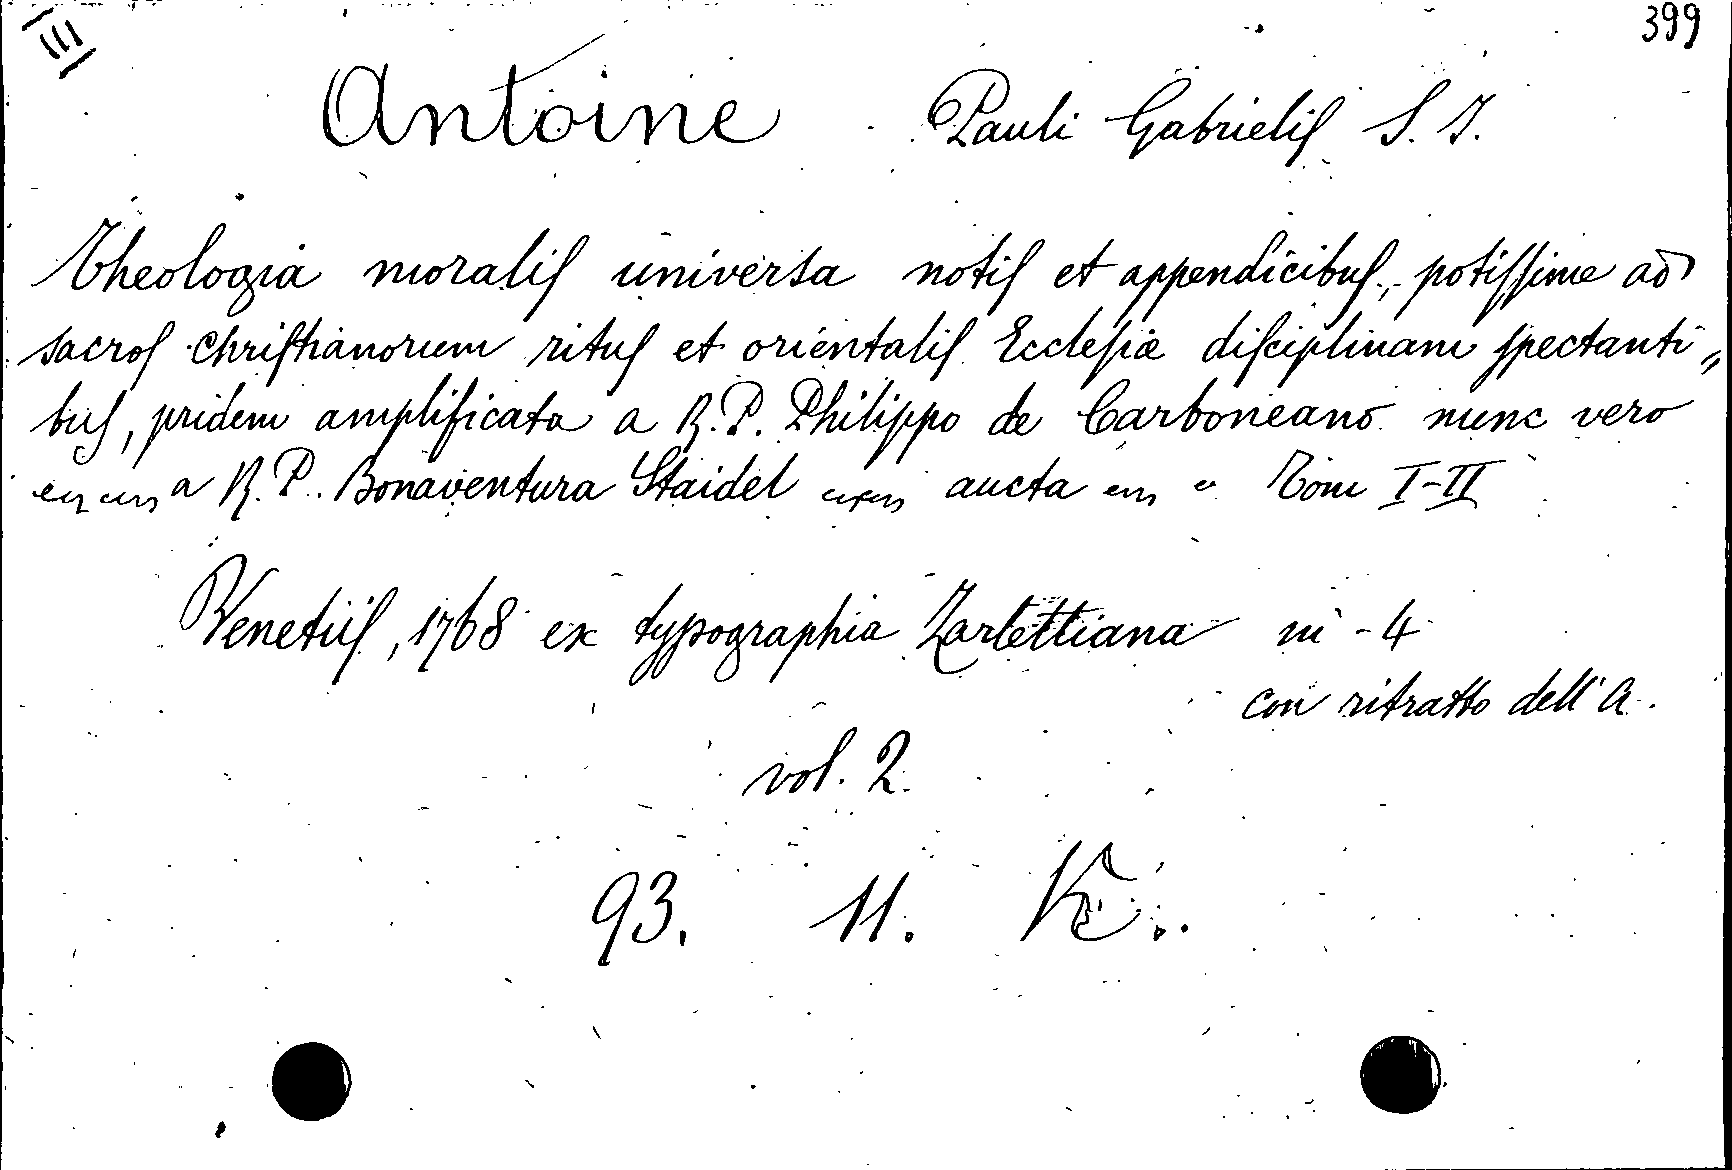 III
399
Antoine Pauli Gabrielis S. J.
Theologia moralis universa notis et appendicibus, potissime ad
sacros christianorum ritus et orientalis Ecclesiæ disciplinam spectanti„
bus, pridem amplificata a R. P. Philippo de Carboneano nunc vero
a R. P. Bonaventura Staidel aucta Tom I-II
Venetiis, 1768 ex typographia Zarlettiana in-4
con ritratto dell'A.
vol. 2.
93. 11.